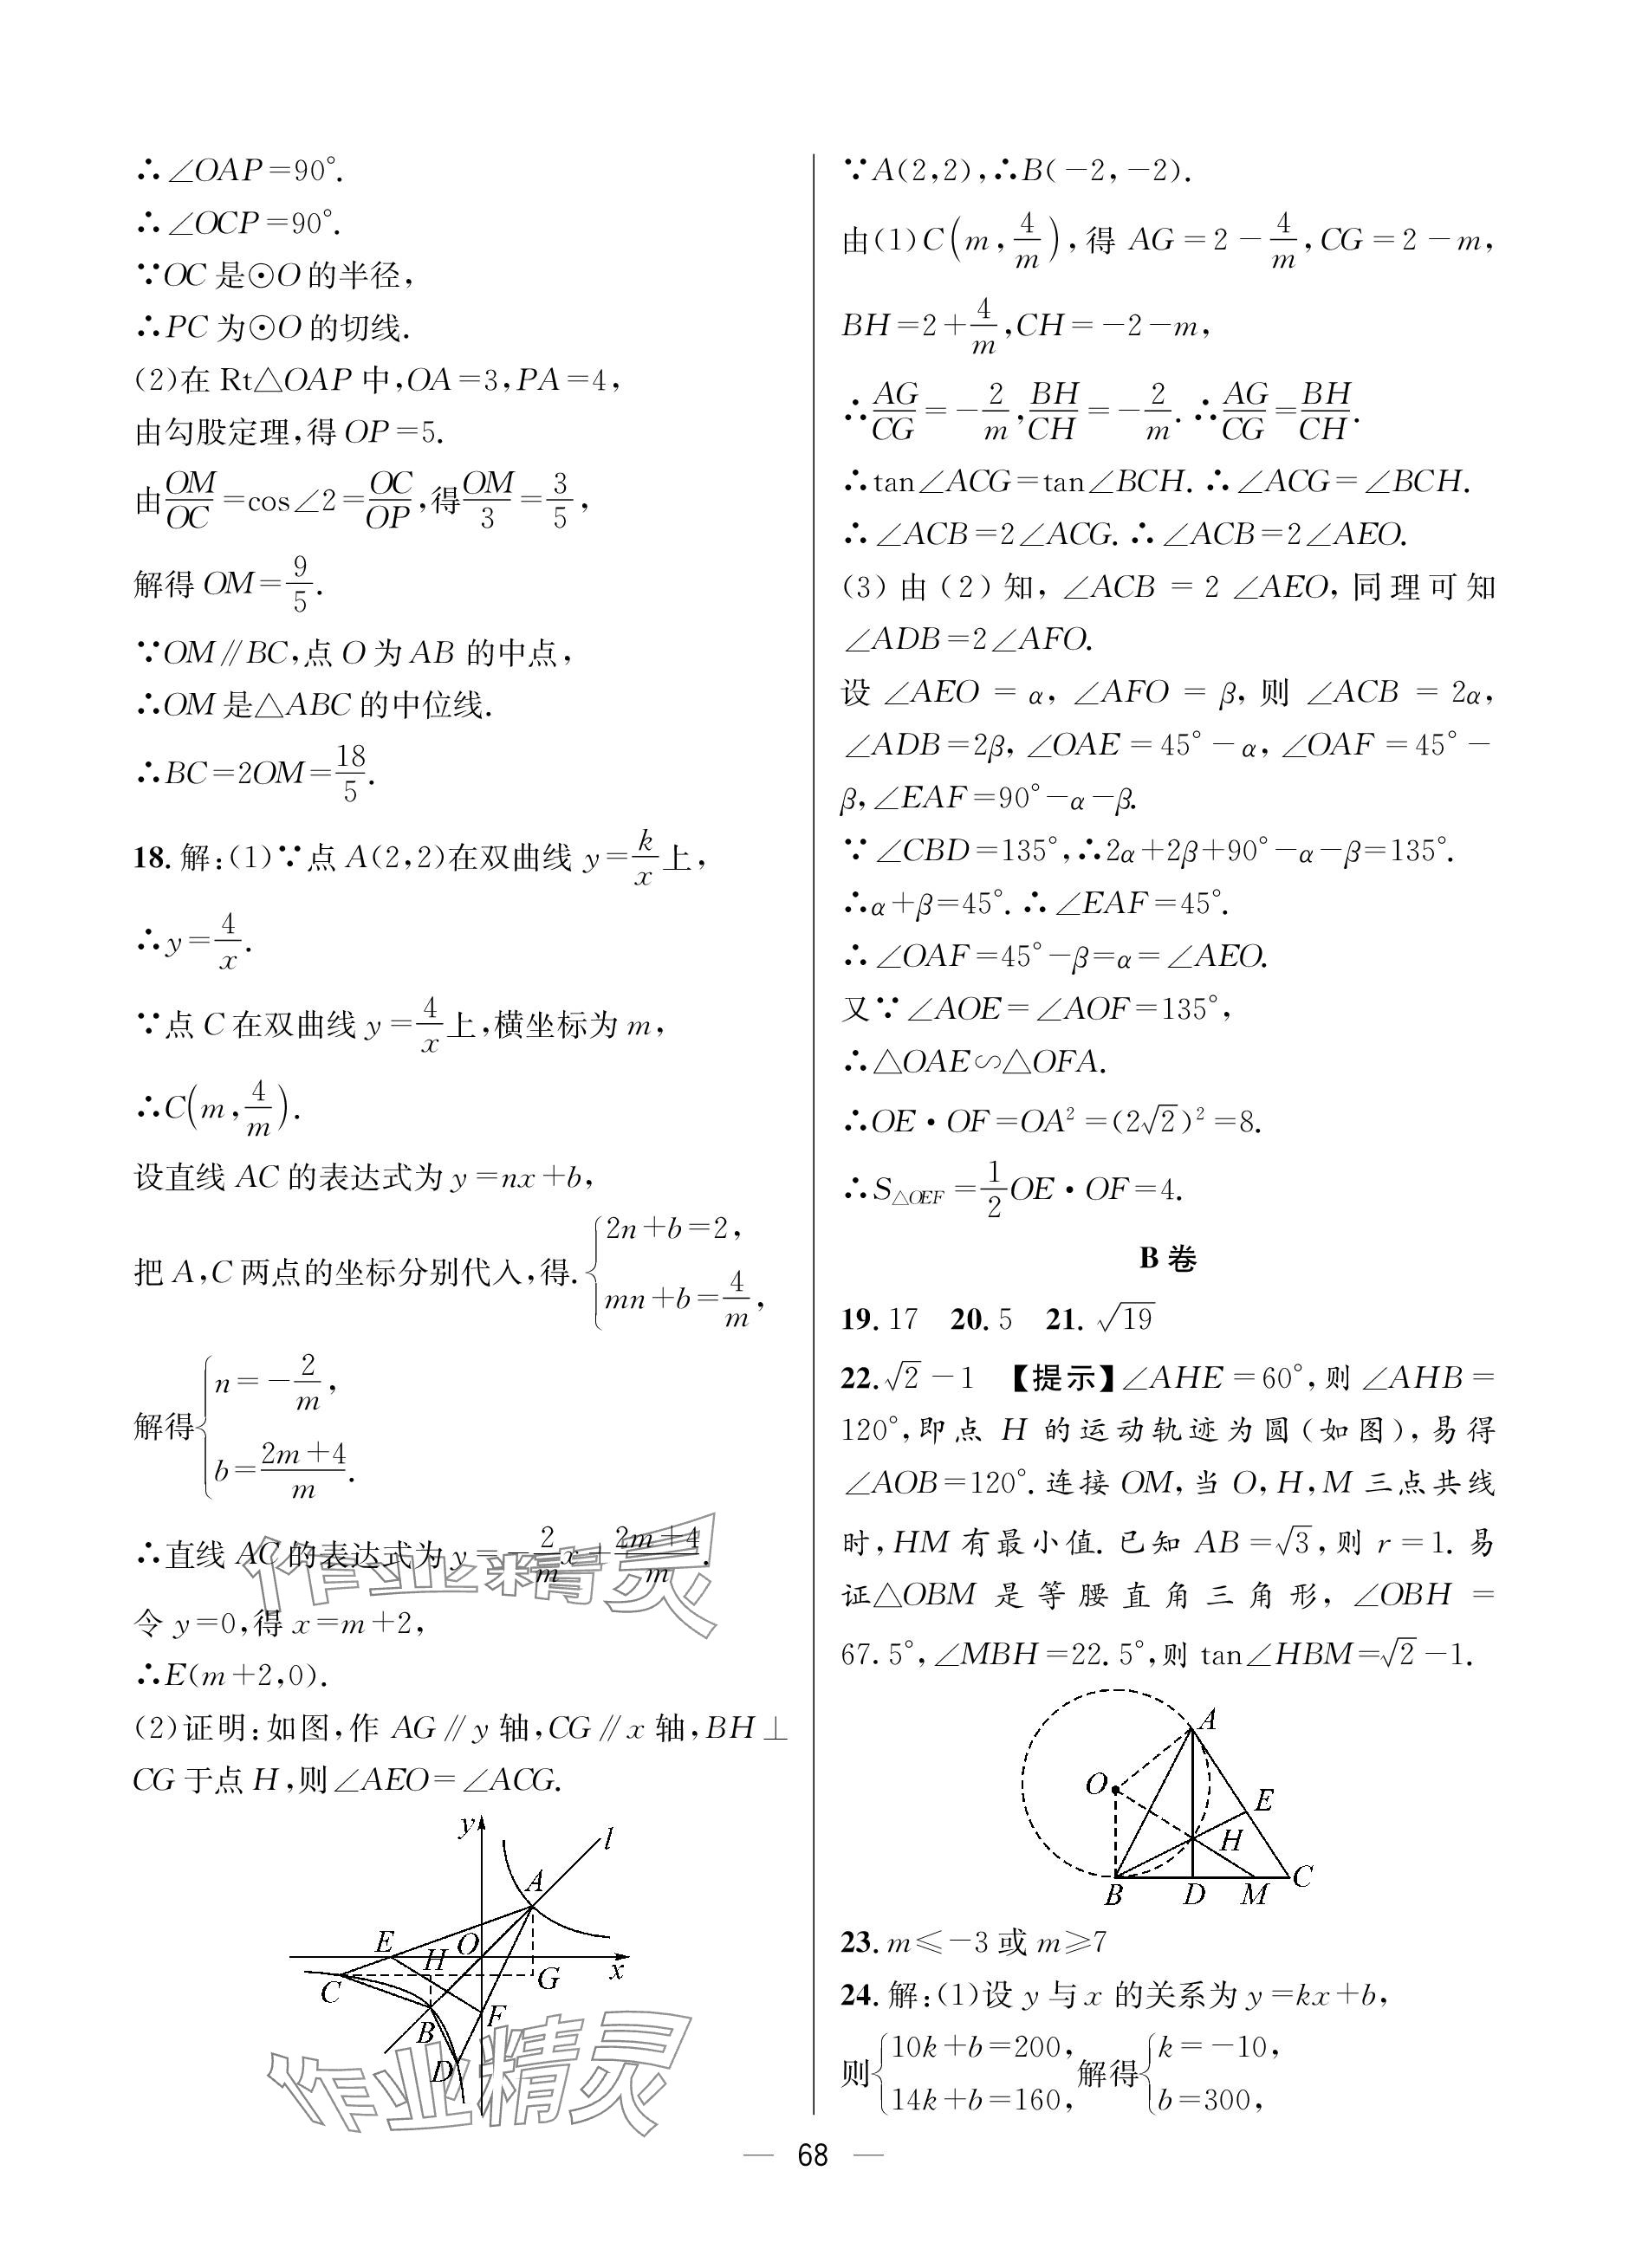 ∴∠OAP=90°.
∴∠OCP=90°.
∵OC 是⊙O的半径，
∴PC 为⊙O 的切线.
(2)在 Rt△OAP 中，OA=3，PA=4，
由勾股定理，得 OP=5.
由OM/OC=cos∠2=OC/OP，得OM/3=3/5，
解得 OM=9/5.
∵OM∥BC，点 O 为 AB 的中点，
∴OM 是△ABC 的中位线.
∴BC=2OM=18/5.
18. 解：(1)∵点 A(2,2)在双曲线 y=k/x上，
∴y=4/x.
∵点 C 在双曲线 y=4/x上，横坐标为 m，
∴C(m,4/m).
设直线 AC 的表达式为 y=nx+b，
把 A，C 两点的坐标分别代入，得.{2n+b=2，
mn+b=4/m，
解得{n=-2/m，
b=(2m+4)/m.
∴直线 AC 的表达式为 y=-2/m x+(2m+4)/m.
令 y=0，得 x=m+2，
∴E(m+2,0).
(2)证明：如图，作 AG∥y 轴，CG∥x 轴，BH⊥
CG 于点 H，则∠AEO=∠ACG.
y
l
A
E
H
O
x
C
G
F
B
D
作业精灵
作业精灵
∵A(2,2)，∴B(-2,-2).
由(1)C(m,4/m)，得 AG=2-4/m，CG=2-m，
BH=2+4/m，CH=-2-m，
∴AG/CG=-2/m，BH/CH=-2/m. ∴AG/CG=BH/CH.
∴tan∠ACG=tan∠BCH. ∴∠ACG=∠BCH.
∴∠ACB=2∠ACG. ∴∠ACB=2∠AEO.
(3) 由 (2) 知，∠ACB = 2 ∠AEO，同理可知
∠ADB=2∠AFO.
设 ∠AEO = α，∠AFO = β，则 ∠ACB = 2α，
∠ADB=2β，∠OAE=45°-α，∠OAF=45°-
β，∠EAF=90°-α-β.
∵∠CBD=135°，∴2α+2β+90°-α-β=135°.
∴α+β=45°. ∴∠EAF=45°.
∴∠OAF=45°-β=α=∠AEO.
又∵∠AOE=∠AOF=135°，
∴△OAE∽△OFA.
∴OE·OF=OA²=(2√2)²=8.
∴S△OEF=1/2 OE·OF=4.
B 卷
19. 17 20. 5 21. √19
22. √2-1 【提示】∠AHE=60°，则∠AHB=
120°，即点 H 的运动轨迹为圆(如图)，易得
∠AOB=120°. 连接 OM，当 O，H，M 三点共线
时，HM 有最小值. 已知 AB=√3，则 r=1. 易
证△OBM 是等腰直角三角形，∠OBH =
67.5°，∠MBH=22.5°，则 tan∠HBM=√2-1.
A
O
E
H
B
D
M
C
23. m≤-3或 m≥7
24. 解：(1)设 y 与 x 的关系为 y=kx+b，
则{10k+b=200，
14k+b=160，
解得{k=-10，
b=300，
— 68 —